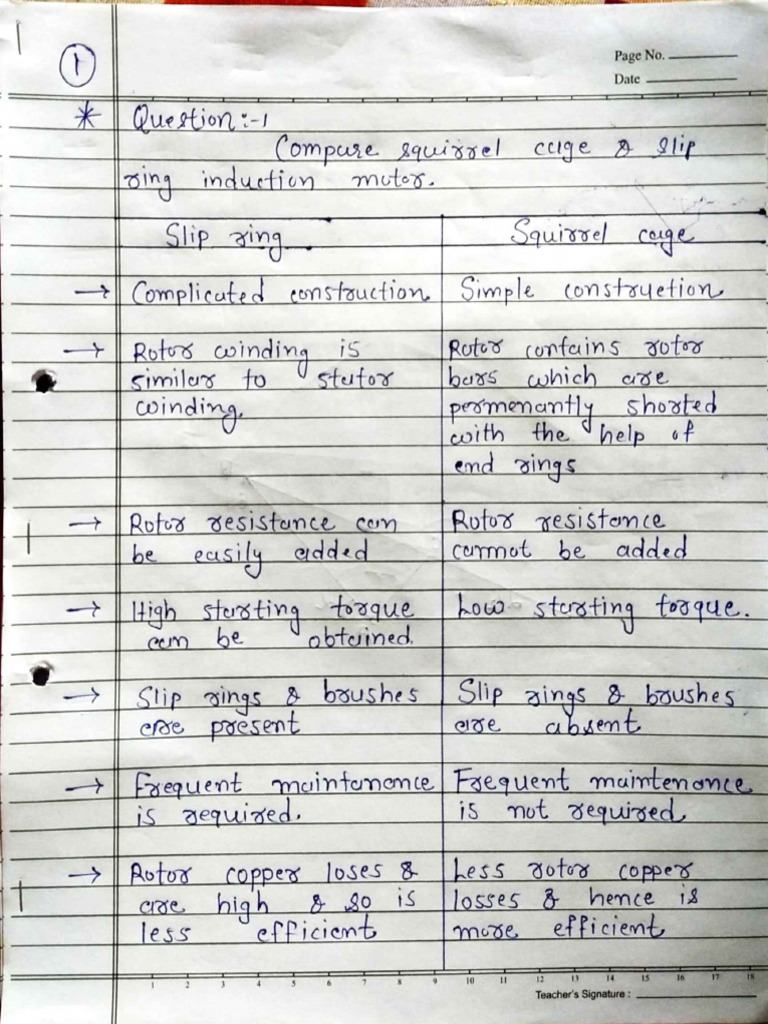 1
Page No.
Date
* Question:-1
Compare squirrel cage & slip
ring induction motor.
Slip ring
Squirrel cage
→ Complicated construction
Simple construction
→ Rotor winding is
similar to stator
winding.
Rotor contains rotor
bars which are
permenantly shorted
with the help of
end rings
→ Rotor resistance can
be easily added
Rotor resistance
cannot be added
→ High starting torque
can be obtained.
Low starting torque.
→ Slip rings & brushes
are present
Slip rings & brushes
are absent
→ Frequent maintanence
is required.
Frequent maintenance
is not required
→ Rotor copper loses &
are high & so is
less efficient
Less rotor copper
losses & hence is
more efficient
1 2 3 4 5 6 7 8 9 10 11 12 13 14 15 16 17 18
Teacher's Signature :